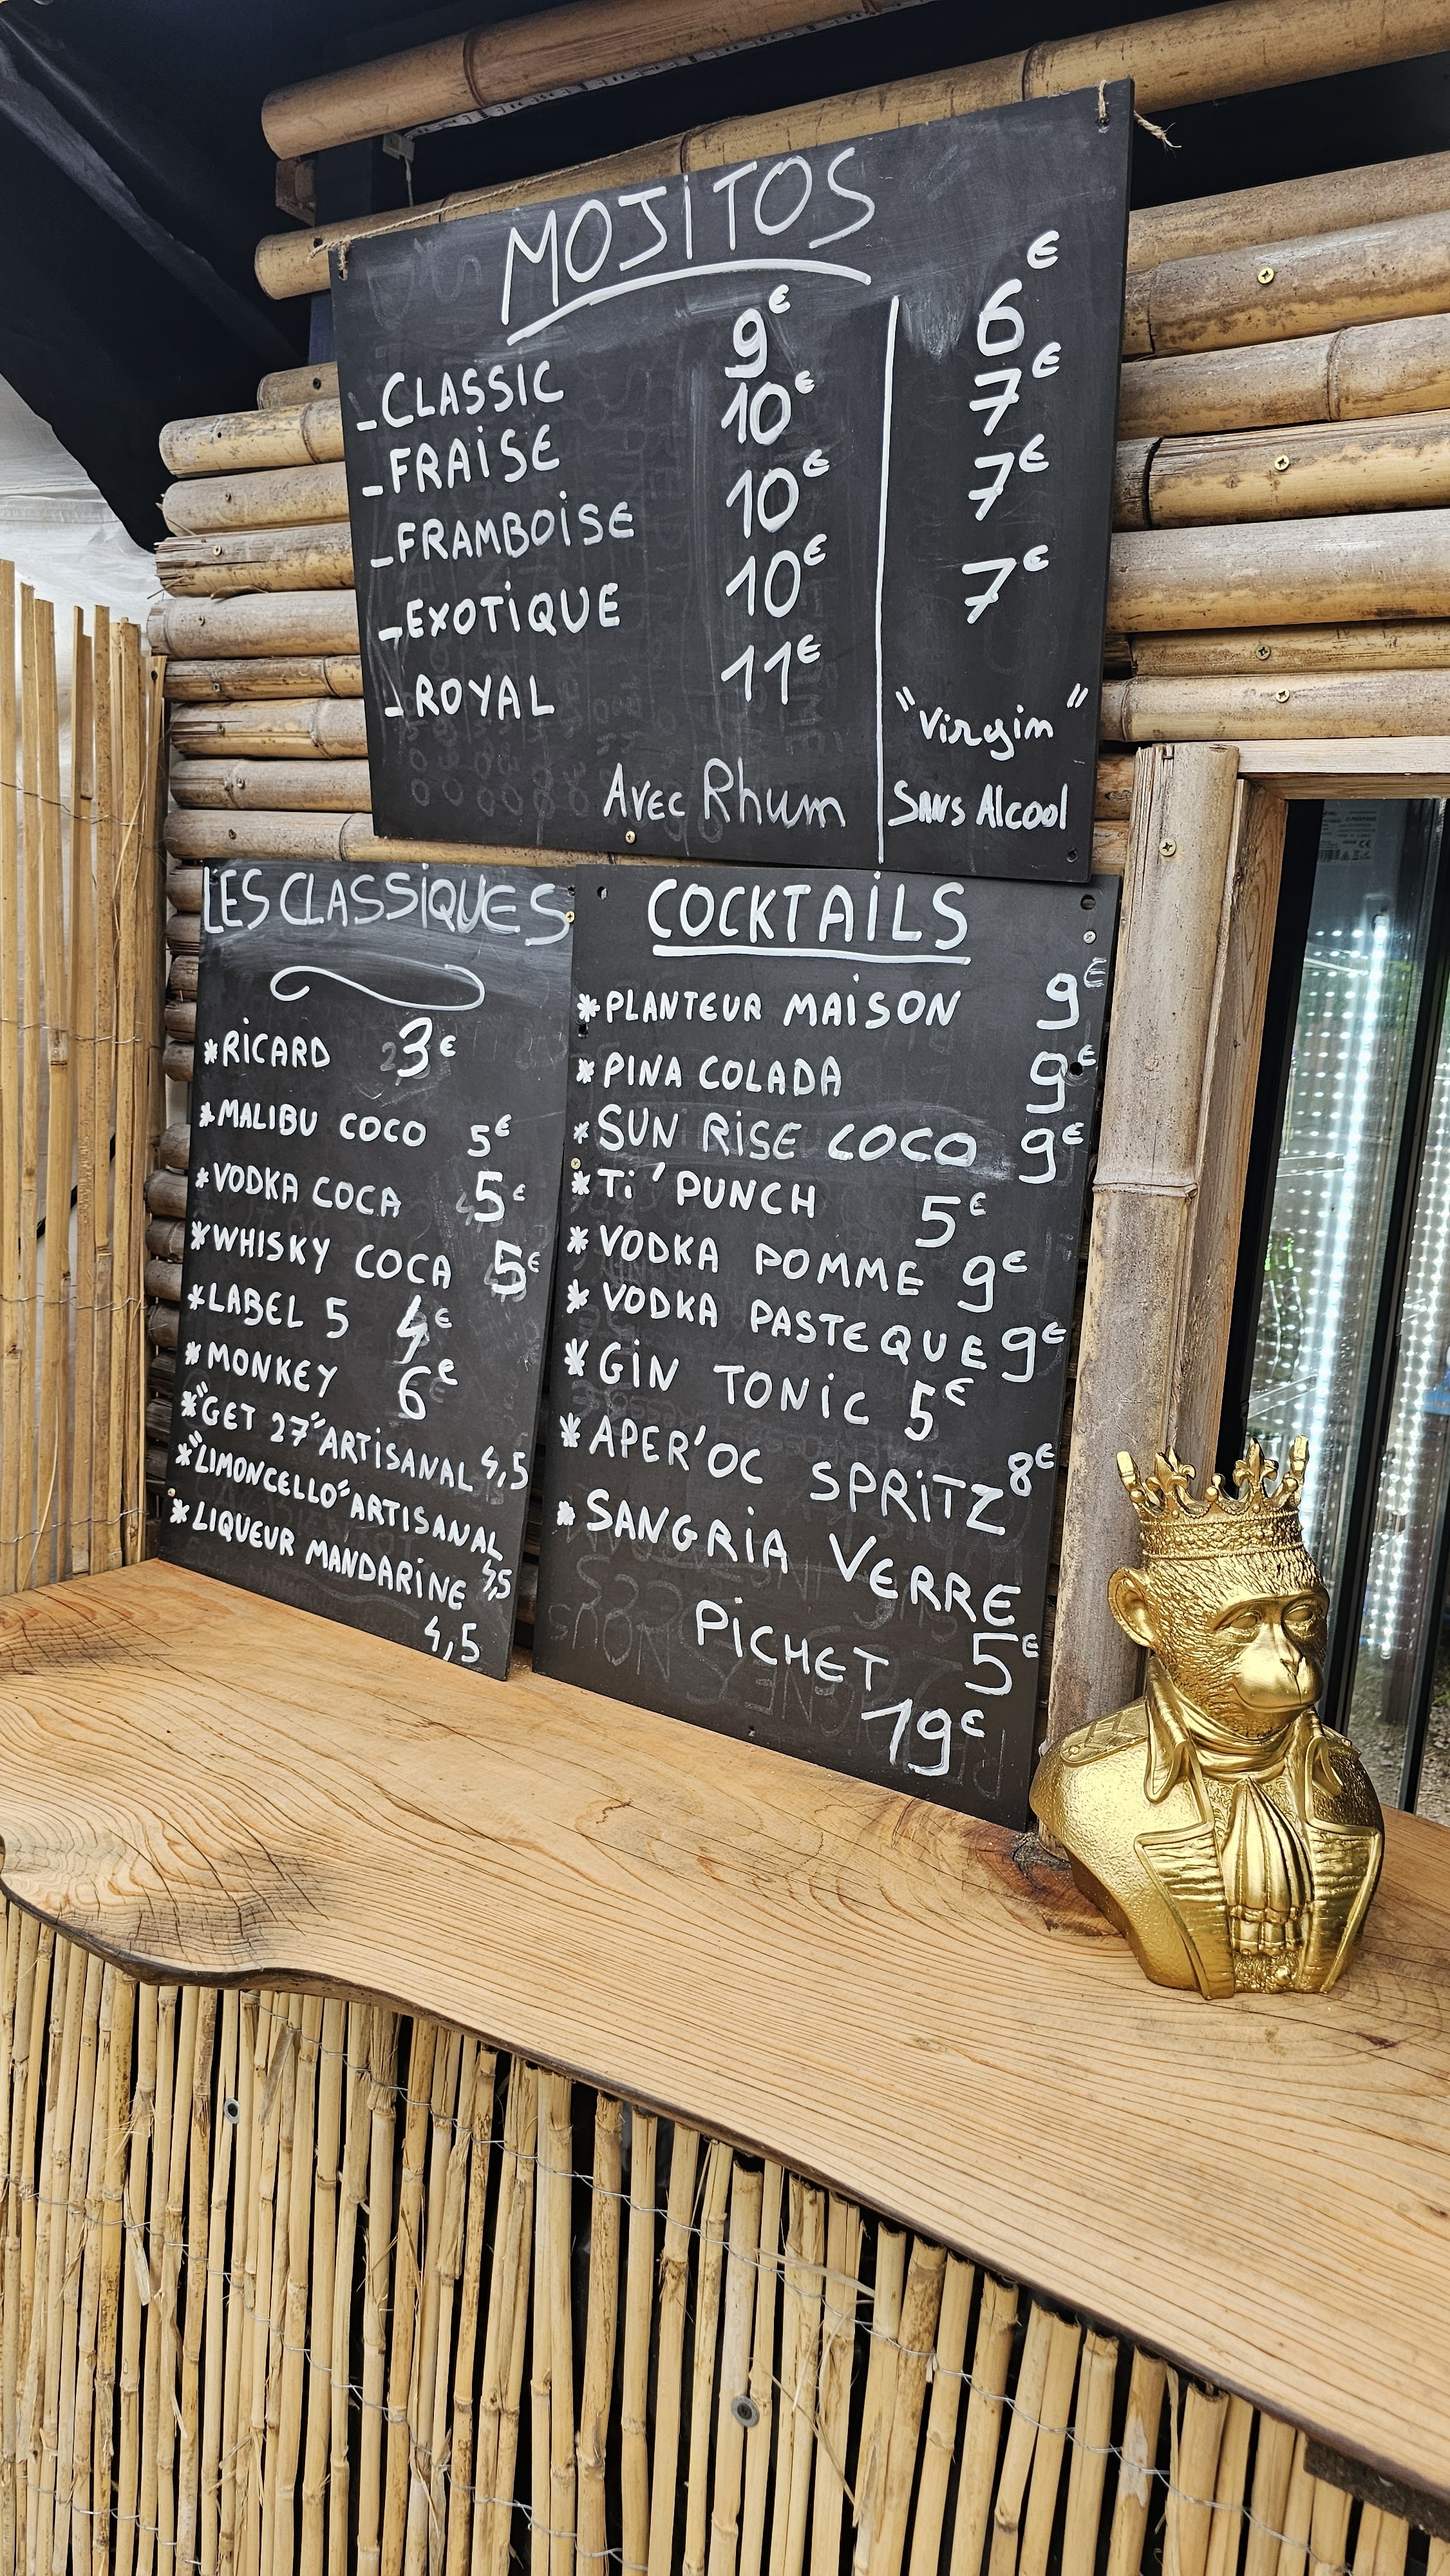 MOJITOS
- CLASSIC 9€ 6€
- FRAISE 10€ 7€
- FRAMBOISE 10€ 7€
- EXOTIQUE 10€ 7€
- ROYAL 11€
"Virgin"
Avec Rhum Sans Alcool
LES CLASSIQUES
* RICARD 3€
* MALIBU COCO 5€
* VODKA COCA 5€
* WHISKY COCA 5€
* LABEL 5 4€
* MONKEY 6€
* "GET 27" ARTISANAL 4,5
* "LIMONCELLO" ARTISANAL
4,5
* LIQUEUR MANDARINE
4,5
COCKTAILS
* PLANTEUR MAISON 9€
* PINA COLADA 9€
* SUN RISE COCO 9€
* Ti'PUNCH 5€
* VODKA POMME 9€
* VODKA PASTEQUE 9€
* GIN TONIC 5€
* APER'OC SPRITZ 8€
* SANGRIA VERRE
5€
PICHET
19€